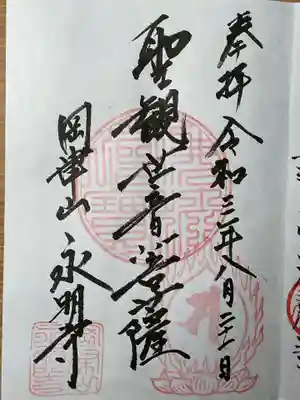 奉拝 令和三年八月二十一日
聖観世音菩薩
岡津山 永明寺